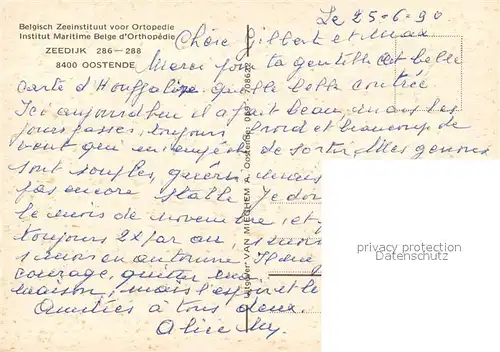 Belgisch Zeeinstituut voor Ortopedie
Institut Maritime Belge d'Orthopédie
ZEEDIJK 286—288
8400 OOSTENDE
Le 25-6-90
Chère Gilberte et Max
Merci pour ta gentille et belle
carte d'Houffalize quelle belle contrée
Ici aujourd'hui il a fait beau mais les
jours passés, toujours froid et beaucoup de
vent qui m'empêche de sortir. Mes genoux
sont souples, guéris, mais
pas encore stable Je dois
le mois de novembre, et
toujours 2x par an,
en automne Il
courage, quitter ma
maison, mais l'espoir et la
Amitiés à tous deux.
Alice
Uitgever VAN MIEGHEM A. Oostende 059-708622
privacy protection